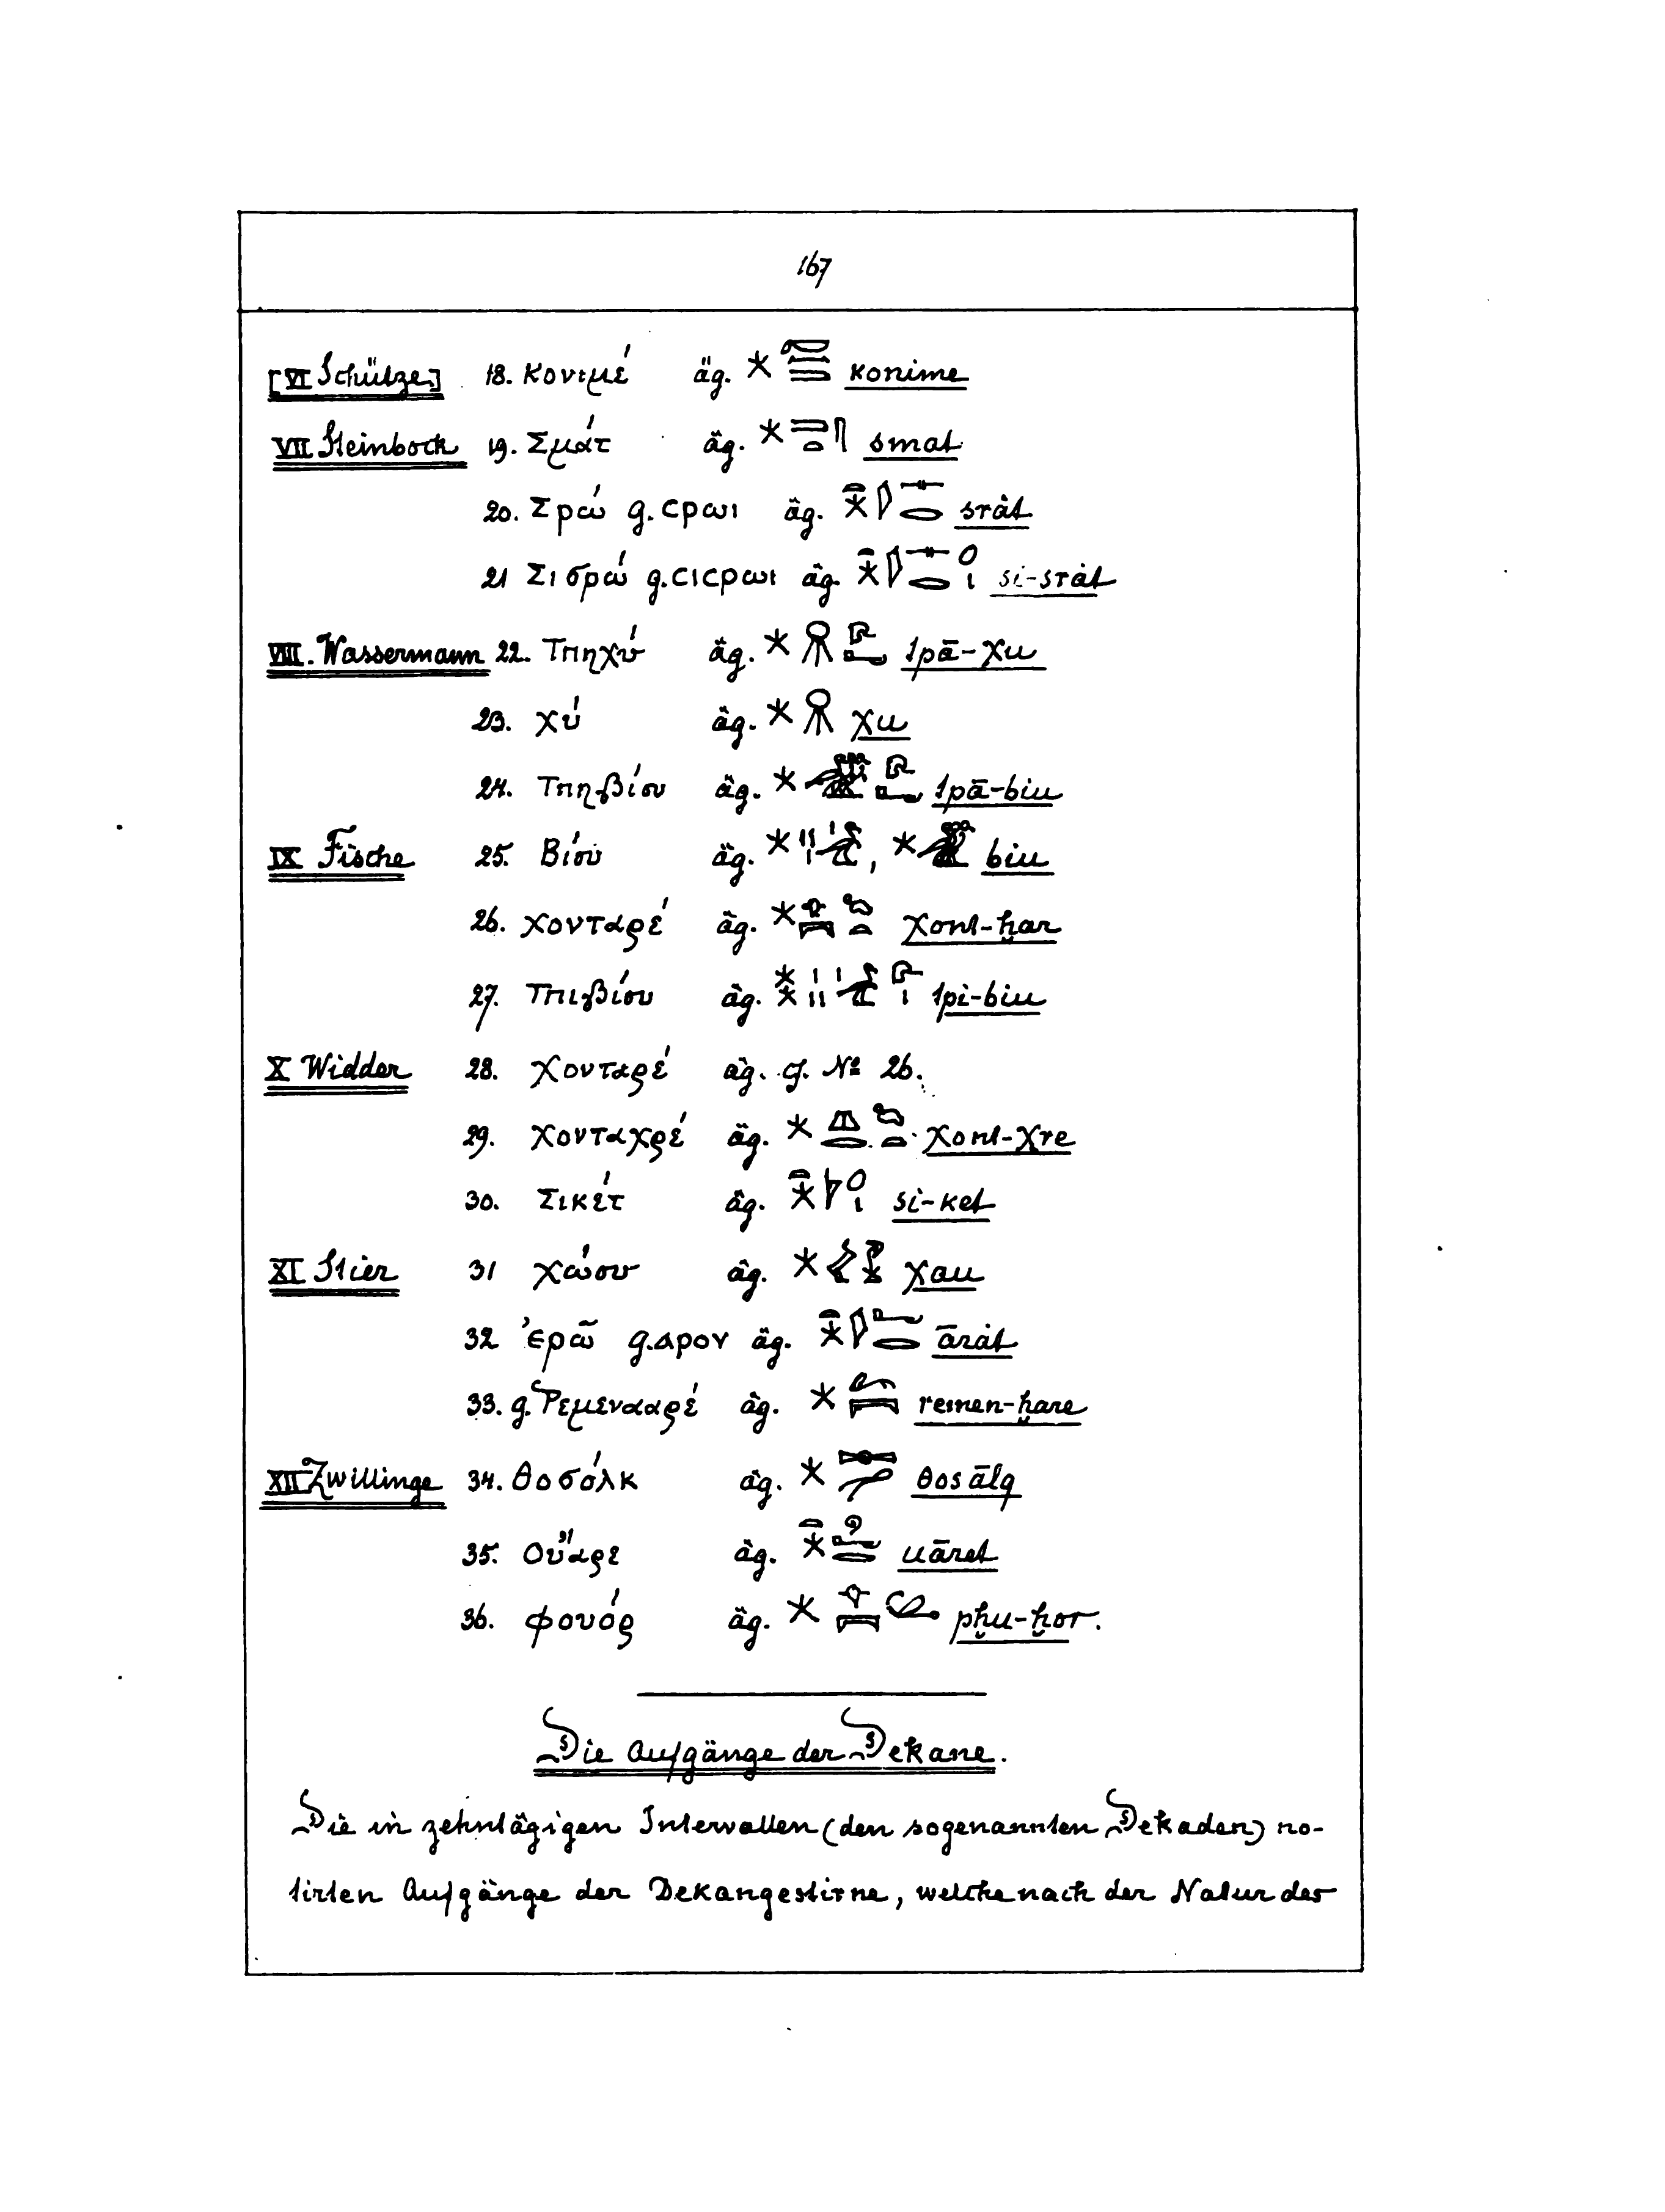 167
[VI Schütze] 18. Κονιμέ äg. konime
VII Steinbock 19. Σμάτ äg. smat
20. Σρώ g. ⲥⲣⲱⲓ äg. sråt
21 Σισρώ g. ⲥⲓⲥⲣⲱⲓ äg. si-sråt
VIII. Wassermann 22. Τπηχύ äg. tpā-χu
23. χύ äg. χu
24. Τπηβίου äg. tpā-biu
IX Fische 25. Βίου äg. , biu
26. χονταρέ äg. χont-ḫar
27. Τπιβίου äg. tpi-biu
X Widder 28. χονταρέ äg. cf. Nº 26.
29. χονταχρέ äg. χont-χre
30. Σικέτ äg. si-ket
XI Stier 31 χώου äg. χau
32 Ἐρῶ g. ⲁⲣⲟⲩ äg. āråt
33. g. Ῥεμενααρέ äg. remen-ḫare
XII Zwillinge 34. θοσόλκ äg. θosālq
35. Οὔαρε äg. uāret
36. φουόρ äg. pḫu-ḫor.
Die Aufgänge der Dekane.
Die in zehntägigen Intervallen (den sogenannten Dekaden) no-
tirten Aufgänge der Dekangestirne, welche nach der Natur des